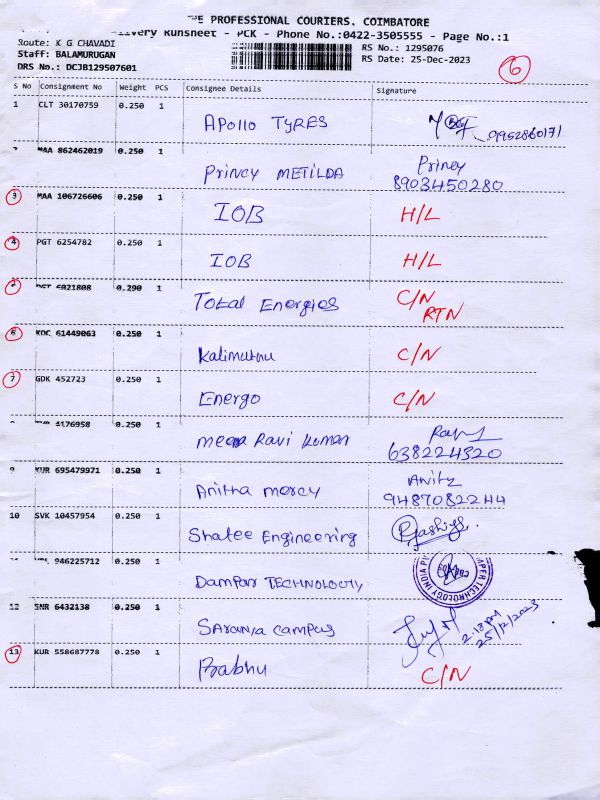 THE PROFESSIONAL COURIERS. COIMBATORE
Delivery Runsheet - PCK - Phone No.:0422-3505555 - Page No.:1
Route: K G CHAVADI
RS No.: 1295076
Staff: BALAMURUGAN
RS Date: 25-Dec-2023
DRS No.: DCJB129507601
6
S No Consignment No Weight PCS Consignee Details Signature
1 CLT 30170759 0.250 1 Apollo TyRES 9952860171
MAA 862462019 0.250 1 Princy METILDA Princy
8903450280
3 MAA 106726606 0.250 1 IOB H/L
4 PGT 6254782 0.250 1 IOB H/L
6921808 0.290 1 Total Energies C/N
RTN
6 KOC 61449063 0.250 1 Kalimuthu C/N
7 GDK 452723 0.250 1 Energo C/N
4176958 0.250 1 meera Ravi kumar
638224320
9 KUR 695479971 0.250 1 Anitha mercy
9487082244
10 SVK 10457954 0.250 1 Shatee Engineering
946225712 0.250 1 Dampar TECHNOLOGY
12 SNR 6432138 0.250 1 Saranya campus
2.18 pm
25/12/2023
13 KUR 558687778 0.250 1 Prabhu C/N